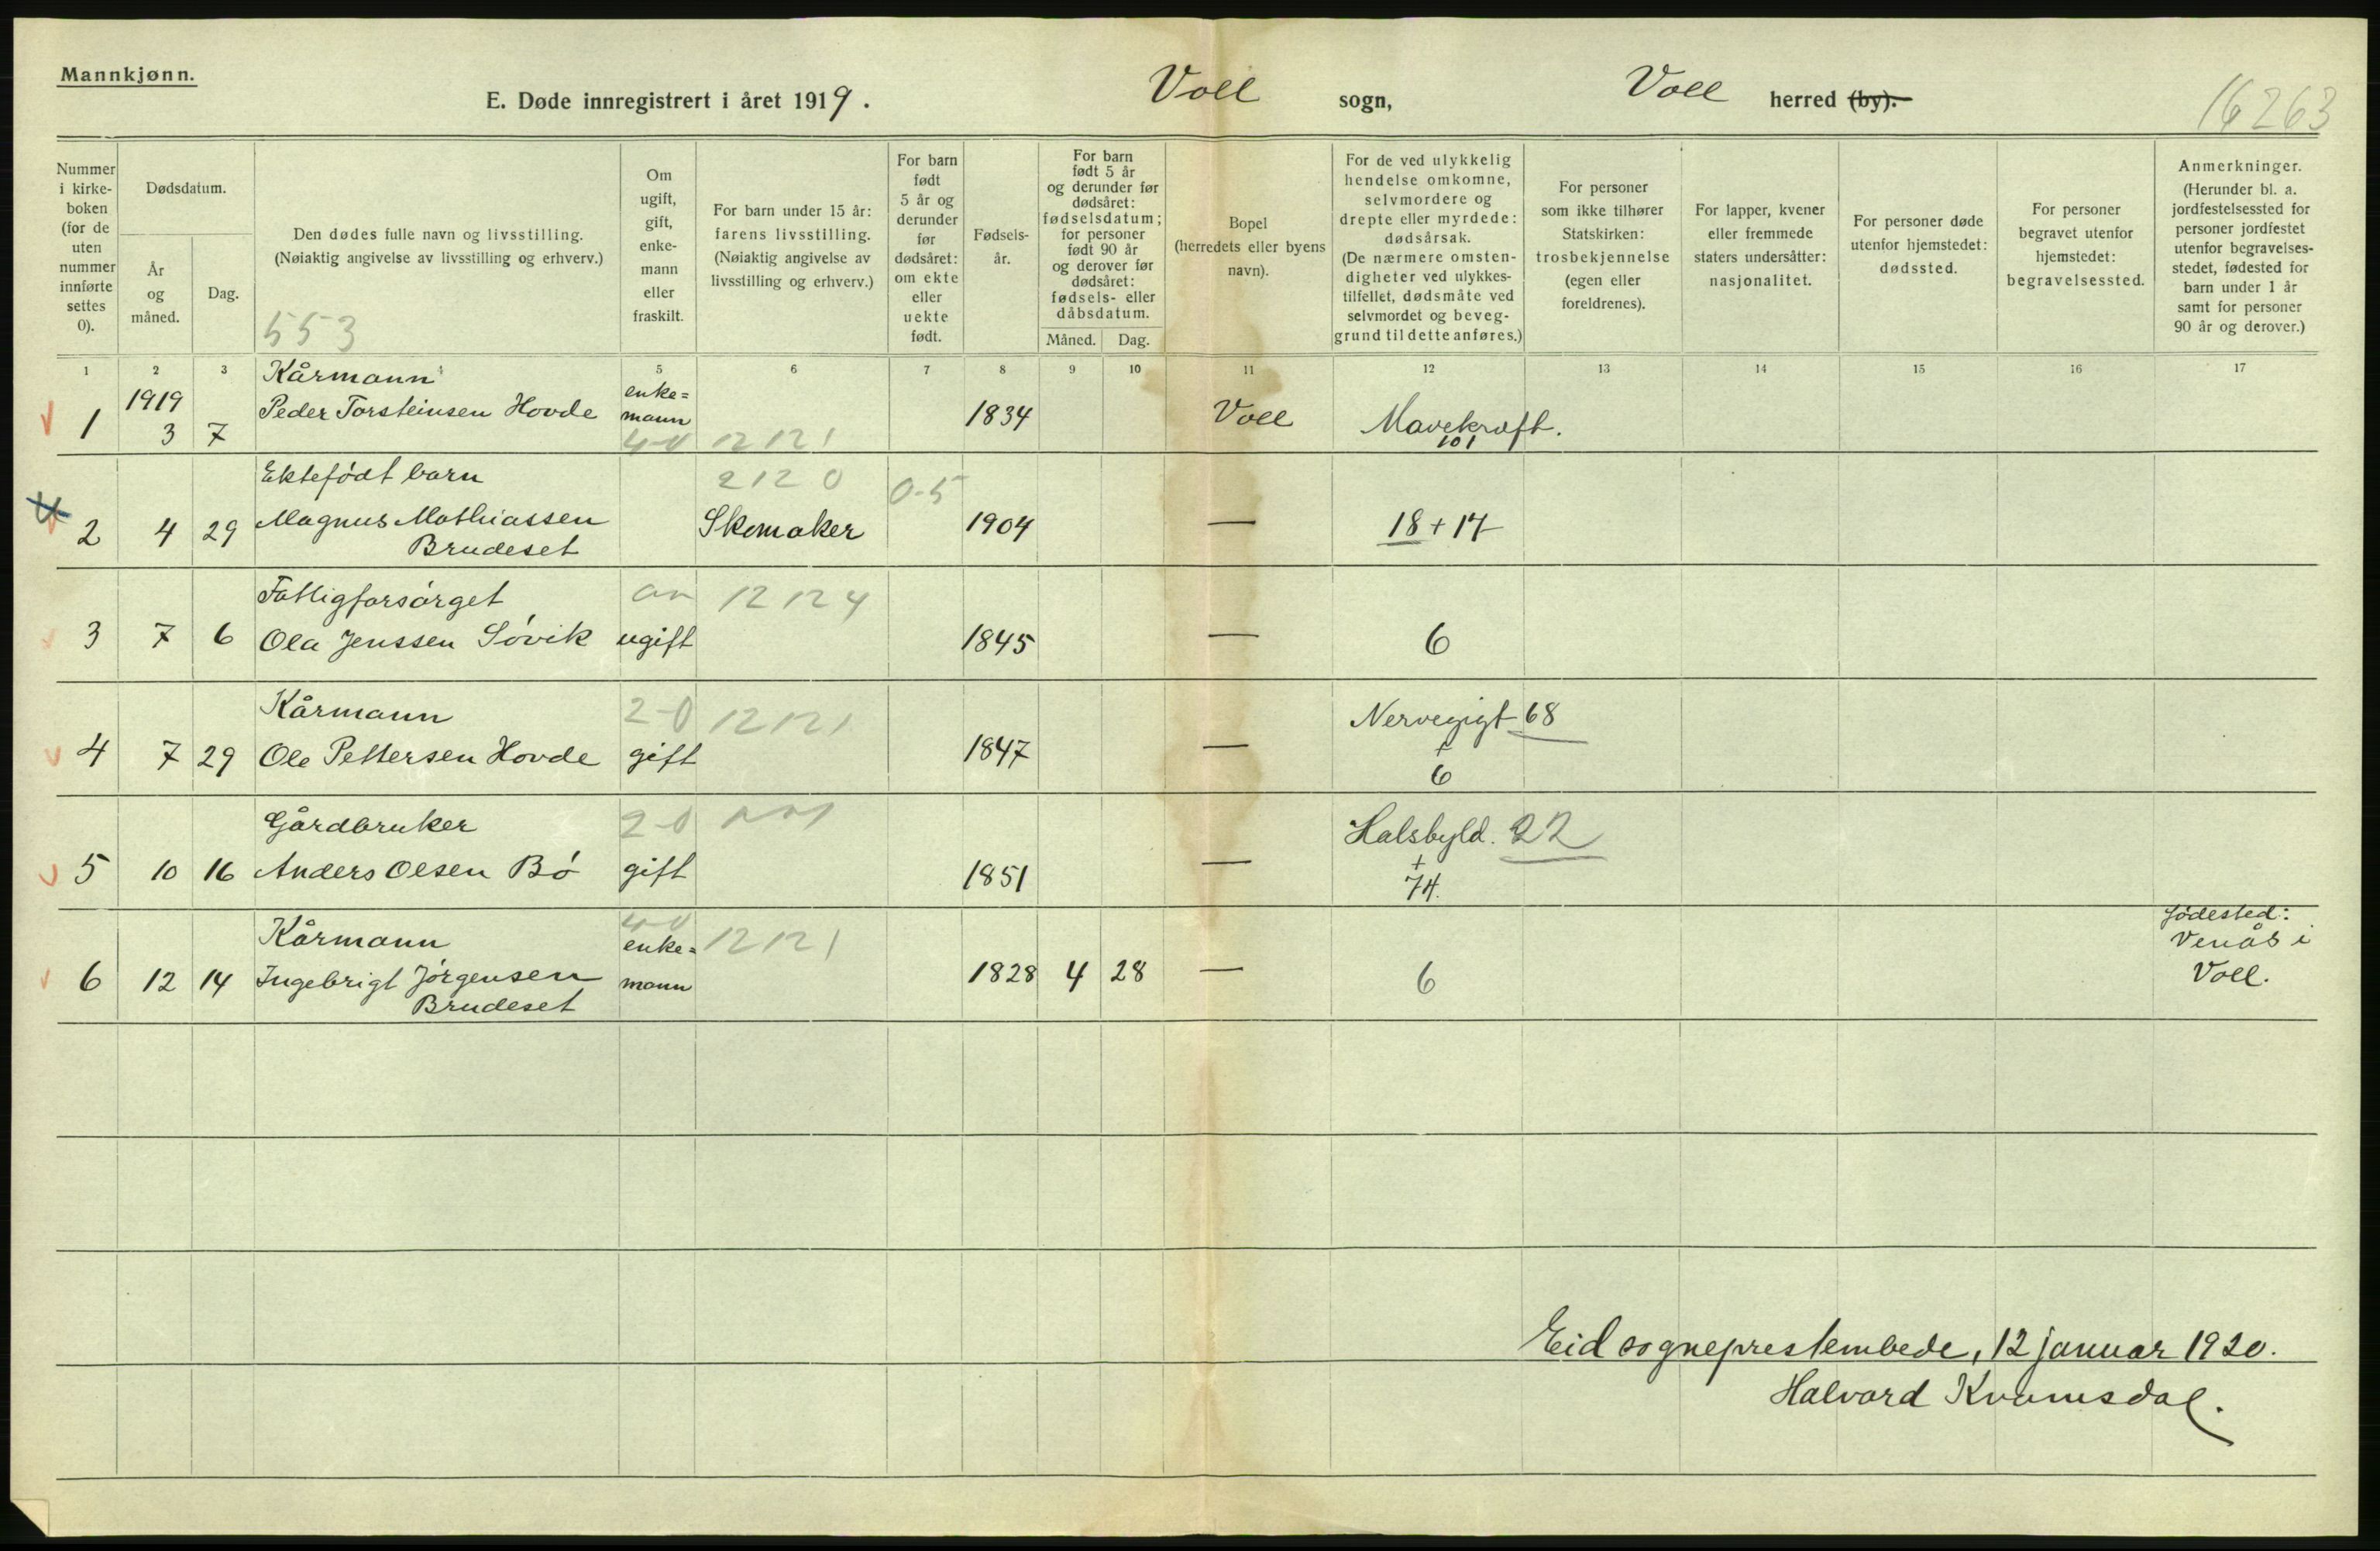 Mannkjønn.
E. Døde innregistrert i året 1919. Voll sogn, Voll herred (by).
16263
Nummer i kirke-boken (for de uten nummer innførte settes 0).
Dødsdatum.
År og måned.
Dag.
Den dødes fulle navn og livsstilling.
(Nøiaktig angivelse av livsstilling og erhverv.)
553
Om ugift, gift, enke-mann eller fraskilt.
For barn under 15 år: farens livsstilling. (Nøiaktig angivelse av livsstilling og erhverv.)
For barn født 5 år og derunder før dødsåret: om ekte eller uekte født.
Fødsels-år.
For barn født 5 år og derunder før dødsåret: fødselsdatum; for personer født 90 år og derover før dødsåret: fødsels- eller dåbsdatum.
Måned. Dag.
Bopel (herredets eller byens navn).
For de ved ulykkelig hendelse omkomne, selvmordere og drepte eller myrdede: dødsårsak. (De nærmere omsten-digheter ved ulykkes-tilfellet, dødsmåte ved selvmordet og beveg-grund til dette anføres.)
For personer som ikke tilhører Statskirken: trosbekjennelse (egen eller foreldrenes).
For lapper, kvener eller fremmede staters undersåtter: nasjonalitet.
For personer døde utenfor hjemstedet: dødssted.
For personer begravet utenfor hjemstedet: begravelsessted.
Anmerkninger. (Herunder bl. a. jordfestelsessted for personer jordfestet utenfor begravelses-stedet, fødested for barn under 1 år samt for personer 90 år og derover.)
1 2 3 4 5 6 7 8 9 10 11 12 13 14 15 16 17
Kårmann
1919 enke=
1 3 7 Peder Torsteinsen Hovde mann 1834 Voll Mavekræft.
4-0 12 12 1 101
Ektefødt barn 2 12 0 0-5
2 4 29 Magnus Mathiassen Skomaker 1904 — 18 + 17
Brudeset
Fattigforsørget 12 12 4
3 7 6 Ola Jenssen Søvik ugift 1845 — 6
Kårmann 2-0 12 12 1 Nervegigt 68
4 7 29 Ole Pettersen Hovde gift 1847 — +
6
Gårdbruker 2-0 Halsbyld. 22
5 10 16 Anders Olsen Bø gift 1851 — +
74.
Kårmann 4-0 enke= 12 12 1 fødested:
Venås i
6 12 14 Ingebrigt Jørgensen mann 1828 4 28 — 6 Voll.
Brudeset
Eid sogneprestembede, 12 januar 1920.
Halvard Kvamsdal.